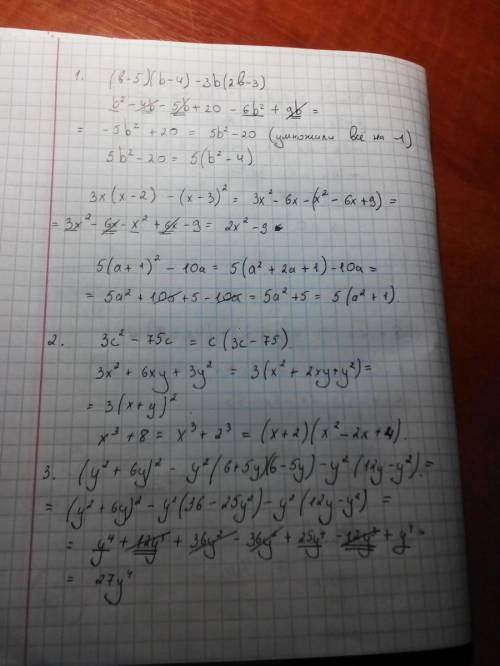 1. (b-5)(b-4)-3b(2b-3)
b² - 4b - 5b + 20 - 6b² + 9b =
= -5b² + 20 = 5b² - 20 (умножили всё на 1)
5b² - 20 = 5(b² - 4)
3x(x-2) - (x-3)² = 3x² - 6x - (x² - 6x + 9) =
= 3x² - 6x - x² + 6x - 9 = 2x² - 9
5(a+1)² - 10a = 5(a² + 2a + 1) - 10a =
= 5a² + 10a + 5 - 10a = 5a² + 5 = 5(a² + 1).
2. 3c² - 75c = c(3c - 75)
3x² + 6xy + 3y² = 3(x² + 2xy + y²) =
= 3(x+y)²
x³ + 8 = x³ + 2³ = (x+2)(x² - 2x + 4).
3. (y² + 6y)² - y²(6+5y)(6-5y) - y²(12y-y²) =
= (y² + 6y)² - y²(36 - 25y²) - y²(12y - y²) =
= y⁴ + 12y³ + 36y² - 36y² + 25y⁴ - 12y³ + y⁴ =
= 27y⁴